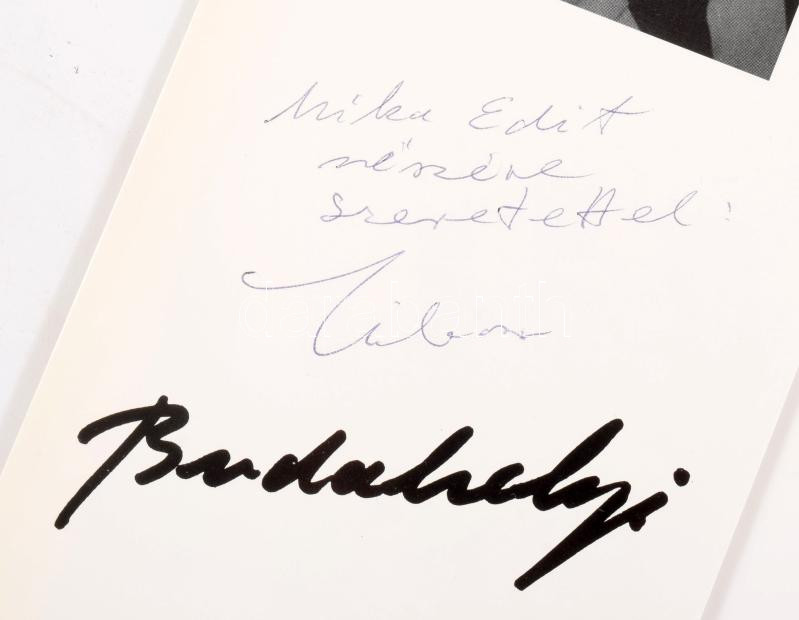 Mika Edit
részére
szeretettel:
Tibor
Budahelyi
darabanth